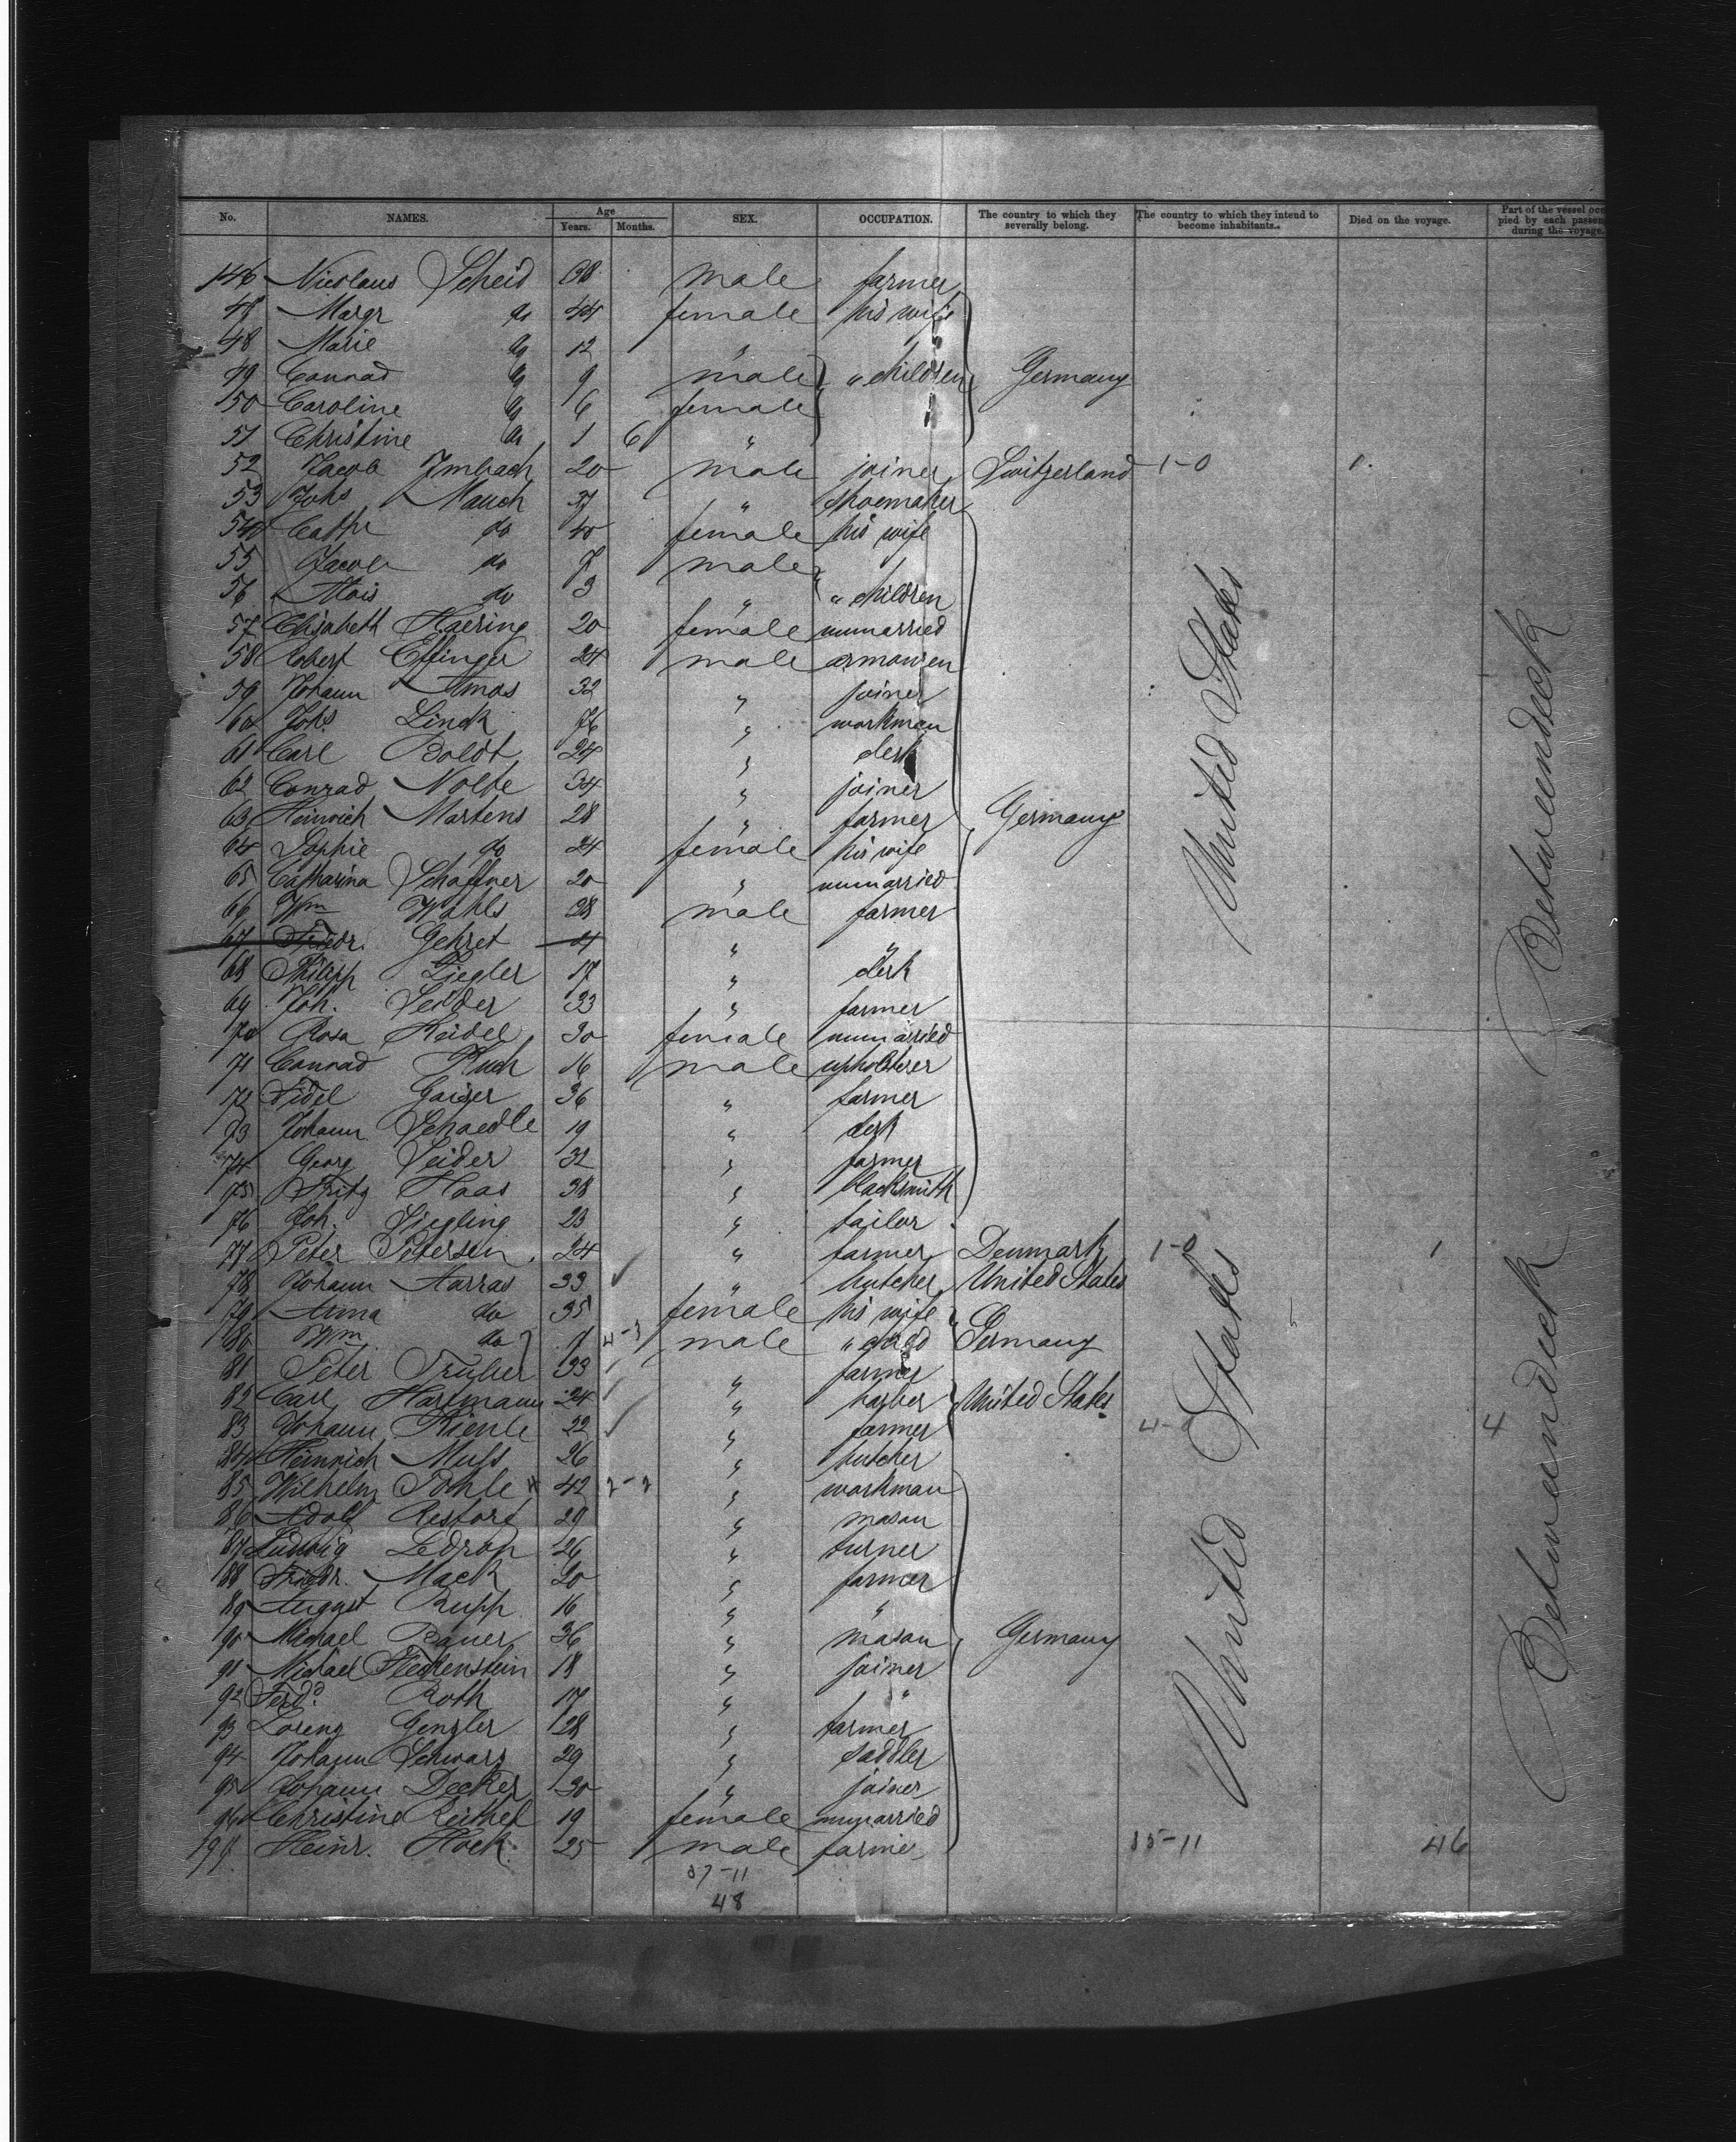 No. NAMES. Age Years. Months. SEX. OCCUPATION. The country to which they severally belong. The country to which they intend to become inhabitants. Died on the voyage. Part of the vessel occupied by each passen during the voyage.
146 Nicolaus Scheid 38 male farmer
47 Margr do 44 female his wife
48 Marie do 12 "
49 Conrad do 9 male " children Germany
50 Caroline do 6 female
51 Christine do 1 6 "
52 Jacob Imbach 20 male joiner Switzerland 1-0 1.
53 Johs Mauch 37 " shoemaker
54 Cathr do 40 female his wife
55 Jacob do 7 male
56 Alois do 3 " " children
57 Elisabeth Haering 20 female unmarried
58 Robert Effinger 24 male
59 Johann Amos 32 " joiner
60 Johs. Linck 76 " workman
61 Carl Boldt 24 " clerk
62 Conrad Nolte 34 " joiner
63 Heinrich Martens 28 " farmer Germany
64 Sophie do 24 female his wife
65 Catharina Schaffner 20 " unmarried
66 Wm Wahls 28 male farmer
67 Friedr. Gehret " "
68 Philipp Ziegler 17 " clerk
69 Joh. Seider 33 " farmer
70 Rosa Heidel 30 female unmarried
71 Conrad Ruch 16 male upholsterer
72 Fidel Gaiser 36 " farmer
73 Johann Schaedle 19 " clerk
74 Georg Seider 32 " farmer
75 Fritz Haas 38 " blacksmith
76 Joh. Siegling 23 " tailor
77 Peter Petersen 24 " farmer Denmark 1-0 1
78 Johann Harras 33 " butcher United States
79 Anna do 35 female his wife
80 Wm do 4-3 male " child Germany
81 Peter Truber 33 " farmer
82 Carl Hartmann 24 " barber United States
83 Johann Kienle 22 " farmer 4- 4
84 Heinrich Muss 26 " butcher
85 Wilhelm Pohle x 42 2-2 " workman
86 Adolf Restorf 29 " mason
87 Ludwig Ledrop 26 " turner
88 Friedr. Mack 20 " farmer
89 August Rupp 16 " "
90 Michael Bauer 36 " mason Germany
91 Michael Fleckenstein 18 " joiner
92 Ferdd. Roth 17 " "
93 Lorenz Genzler 28 " farmer
94 Johann Schwarz 29 " saddler
95 Johann Decker 30 " joiner
96 Christine Reithel 19 female unmarried
197 Heinr. Hock 25 male farmer 35-11 46
37-11
48
United States
United States
Betweendeck
Betweendeck